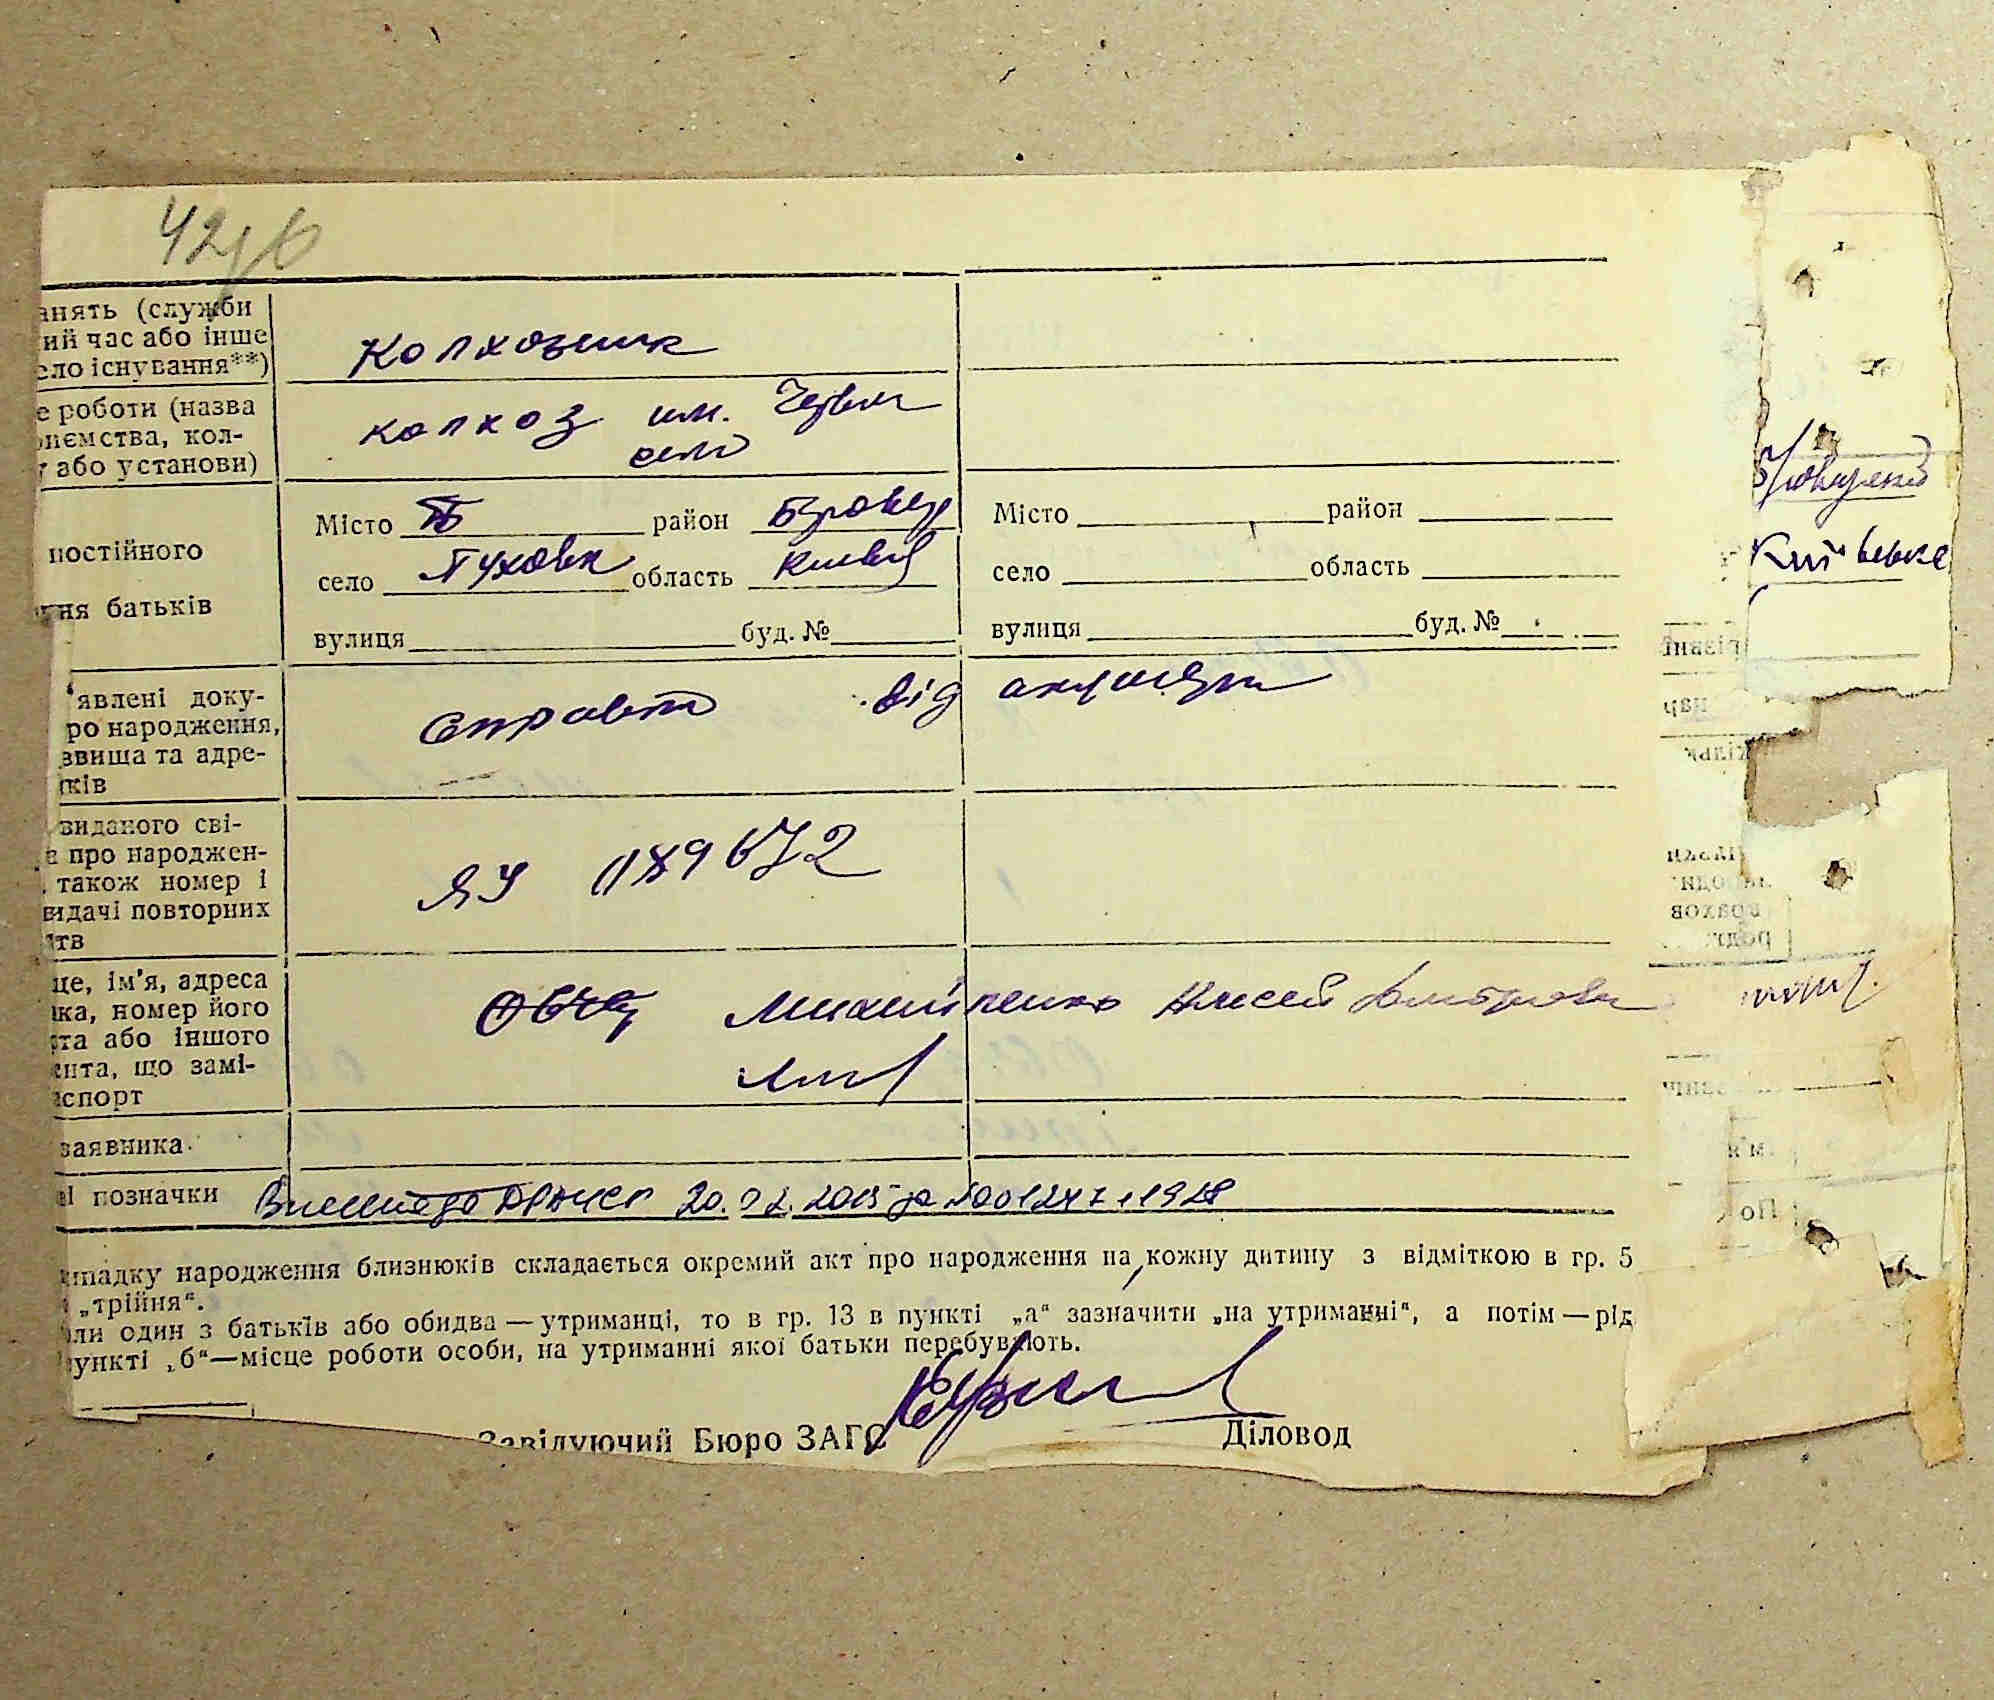 анять (служби
ий час або інше
ело існування**)
Колхозник
е роботи (назва
иємства, кол-
у або установи)
колхоз им. Черв
село
постійного
ня батьків
Місто район Бровар
село Пуховка область Киевск
вулиця буд. №
Місто район
село область
вулиця буд. №
Київське
явлені доку-
ро народження,
звища та адре-
ків
справка від акушерки
виданого сві-
а про народжен-
також номер і
видачі повторних
тв
ЯУ 089672
це, ім'я, адреса
ика, номер його
рта або іншого
ента, що замі-
аспорт
Михайленко
заявника
і позначки
Внесено до ДРАЦСГ 20.02.2015 за №00124711928
ипадку народження близнюків складається окремий акт про народження на кожну дитину з відміткою в гр. 5
„трійня“.
оли один з батьків або обидва — утриманці, то в гр. 13 в пункті „а“ зазначити „на утриманні“, а потім — рід
пункті „б“—місце роботи особи, на утриманні якої батьки перебувають.
Завідуючий Бюро ЗАГС
Діловод